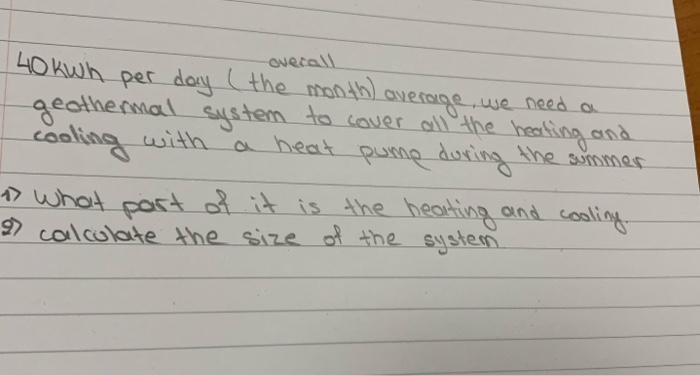 overall
40kwh per day (the month) average, we need a
geothermal system to cover all the heating and
cooling with a heat pump during the summer
1) what part of it is the heating and cooling.
2) calculate the size of the system